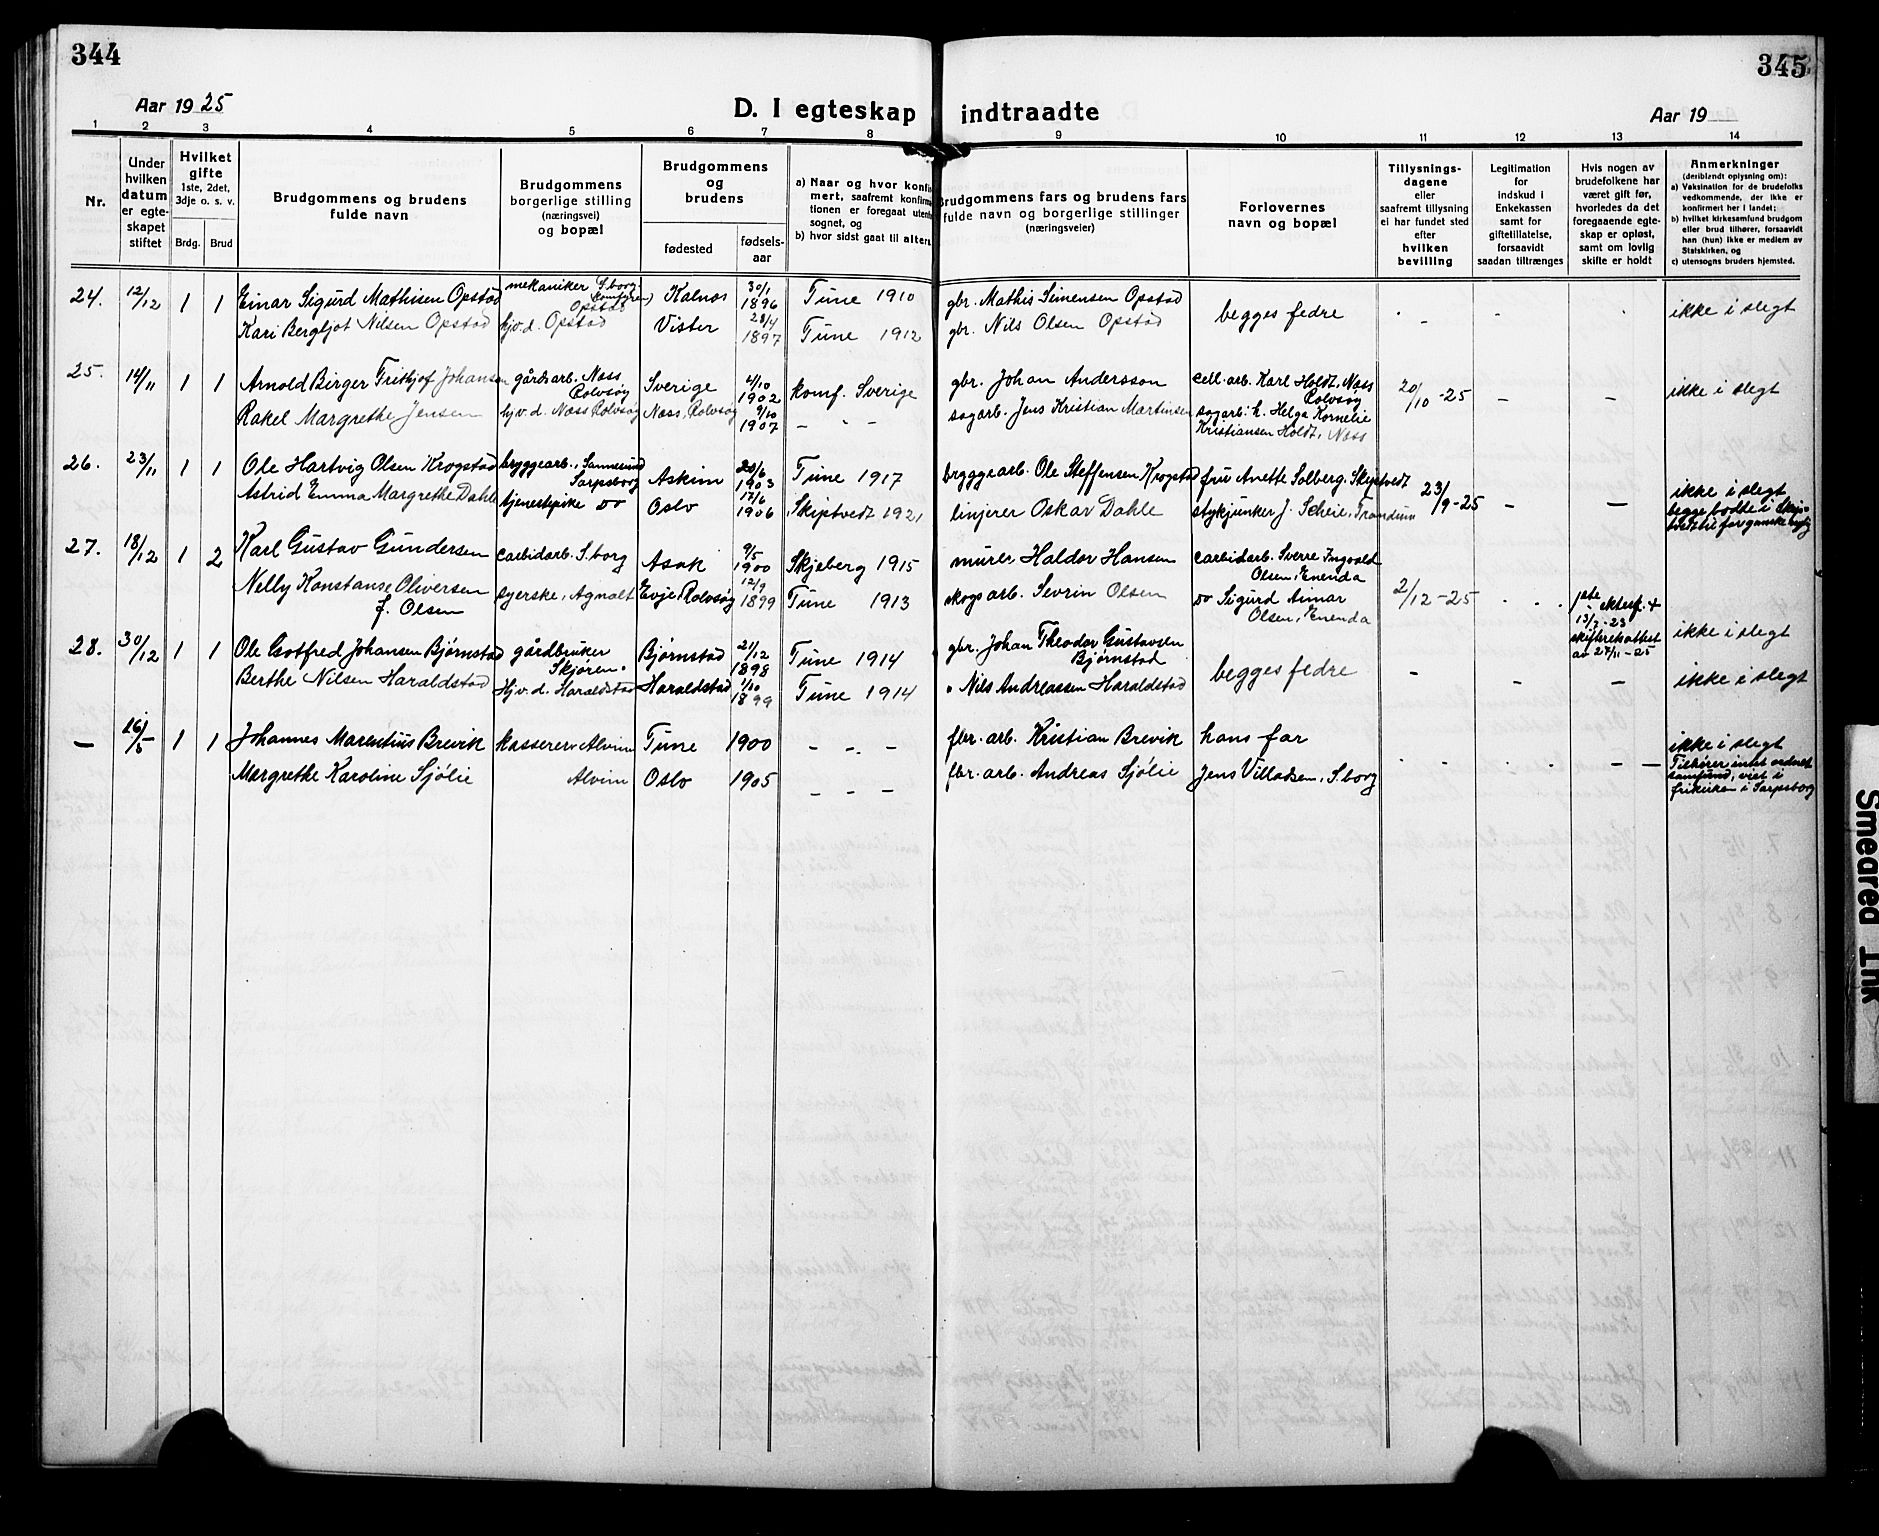 344
345
Aar 1925
D. I egteskap indtraadte
Aar 19
1 2 3 4 5 6 7 8 9 10 11 12 13 14
Nr.
Under hvilken datum er egteskapet stiftet
Hvilket gifte 1ste, 2det, 3dje o. s. v.
Brdg. Brud
Brudgommens og brudens fulde navn
Brudgommens borgerlige stilling (næringsvei) og bopæl
Brudgommens og brudens
fødested
fødselsaar
a) Naar og hvor konfirmert, saafremt konfirmationen er foregaat utenfor sognet, og
b) hvor sidst gaat til alters
Brudgommens fars og brudens fars fulde navn og borgerlige stillinger (næringsveier)
Forlovernes navn og bopæl
Tillysningsdagene eller saafremt tillysning ei har fundet sted efter hvilken bevilling
Legitimation for indskud i Enkekassen samt for giftetillatelse, forsaavidt saadan tiltrænges
Hvis nogen av brudefolkene har været gift før, hvorledes da det foregaaende egteskap er opløst, samt om lovlig skifte er holdt
Anmerkninger (deriblandt oplysning om):
a) Vaksination for de brudefolks vedkommende, der ikke er konfirmert her i landet;
b) hvilket kirkesamfund brudgom eller brud tilhører, forsaavidt han (hun) ikke er medlem av Statskirken, og
c) utensogns bruders hjemsted.
24. 12/12 1 1 Einar Sigurd Mathisen Opstad mekaniker S.borg Opstad Kalnes 30/1 1896 Tune 1910 gbr. Mathis Simensen Opstad begges fedre - - - ikke i slegt
Kari Bergljot Nilsen Opstad hjv.d. Opstad Vister 28/4 1897 Tune 1912 gbr. Nils Olsen Opstad
25. 14/11 1 1 Arnold Birger Frithjof Johansen gårdsarb. Næss Rolvsøy Sverige 4/10 1902 konf. Sverige gbr. Johan Andersson cell.arb. Karl Holdt, Næss Rolvsøy 20/10-25 - - ikke i slegt
Rakel Margrethe Jensen hjv.d. Næss Rolvsøy Næss, Rolvsøy 9/10 1907 - - - sagarb. Jens Kristian Martinsen sagarb. h. Helga Kornelie Kristiansen Holdt, Næss
26. 23/11 1 1 Ole Hartvig Olsen Krogstad bryggearb., Sannesund Sarpsborg Askim 28/6 1903 Tune 1917 bryggearb. Ole Steffensen Krogstad fru Anette Solberg, Skiptvedt 23/9-25 - - ikke i slegt
Astrid Emma Margrethe Dahle tjenestepike do Oslo 17/6 1906 Skiptvedt 1921 linjerer Oskar Dahle stykjunker J. Scheie, Trandum begge bodde i Skiptvedt
27. 18/12 1 2 Karl Gustav Gundersen carbidarb. S.borg Asak 9/5 1900 Skjeberg 1915 murer Haldor Hansen carbidarb. Sverre Ingvald Olsen, Enenda 2/12-25 - -
Nelly Konstanse Oliversen f. Olsen syerske, Agnalt Evje, Rolvsøy 12/9 1899 Tune 1913 skogsarb. Sevrin Olsen do Sigurd Aimar Olsen, Enenda 1ste ektesf. + 13/7-23 skifterettsattest av 27/11-25 ikke i slegt
28. 30/12 1 1 Ole Gotfred Johansen Bjørnstad gårdbruker Skjøren Bjørnstad 21/12 1898 Tune 1914 gbr. Johan Theodor Gustavsen Bjørnstad begges fedre - - - ikke i slegt
Berthe Nilsen Haraldstad Hjv.d. Haraldstad Haraldstad 1/10 1899 Tune 1914 " Nils Andreassen Haraldstad
- 16/5 1 1 Johannes Marentius Brevik kasserer Alvim Tune 1900 - - - fbr. arb. Kristian Brevik hans far - - - ikke i slegt
Margrethe Karoline Sjølie Alvim Oslo 1905 - - - fbr. arb. Andreas Sjølie Jens Villadsen, S.borg Tilhører intet ordnet samfund, viet i frikirken i Sarpsborg
Smeared Ink